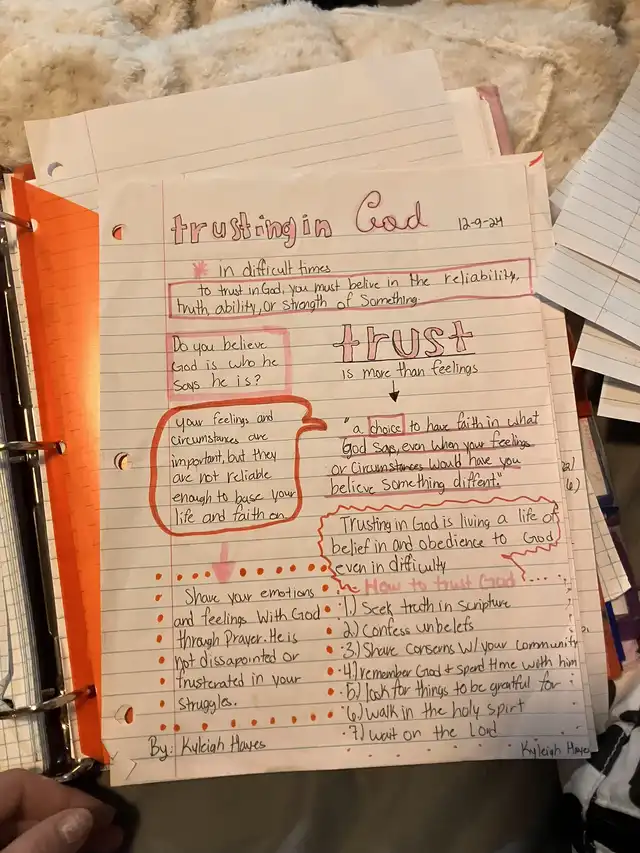 trusting in God 12-9-24
in difficult times
to trust in God, you must belive in the reliability,
truth, ability, or strength of something.
Do you believe
God is who he
says he is?
trust
is more than feelings
your feelings and
circumstances are
important, but they
are not reliable
enough to base your
life and faith on.
"a choice to have faith in what
God says, even when your feelings
or circumstances would have you
believe something diffent."
Trusting in God is living a life of
belief in and obedience to God
even in difficulty
Share your emotions
and feelings with God
through Prayer. He is
not dissapointed or
frusterated in your
struggles.
How to trust God ...
1) Seek truth in scripture
2) Confess unbelefs
3) Share concerns w/ your community
4) remember God + spend time with him
5) look for things to be greatful for
6) walk in the holy spirt
7) wait on the Lord
By: Kyleigh Hayes
Kyleigh Hayes